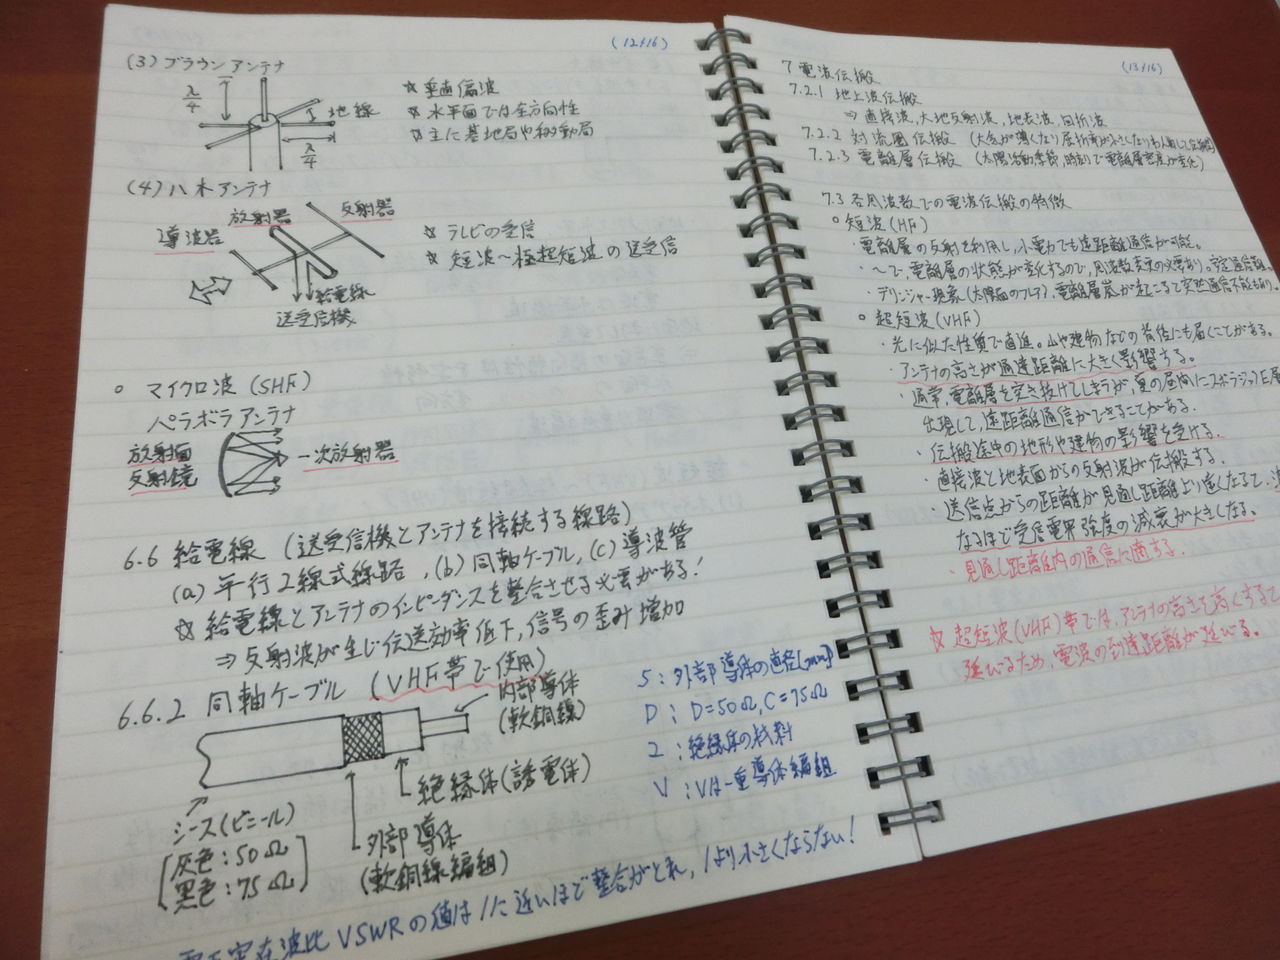 (12/16)
(3) ブラウンアンテナ
λ/4
地線
λ/4
☆ 垂直偏波
☆ 水平面では全方向性
☆ 主に基地局や移動局
(4) 八木アンテナ
放射器
反射器
導波器
給電線
送受信機
☆ テレビの受信
☆ 短波～極超短波の送受信
○ マイクロ波 (SHF)
パラボラアンテナ
放射面
反射鏡
一次放射器
6.6 給電線 (送受信機とアンテナを接続する線路)
(a) 平行2線式線路, (b) 同軸ケーブル, (c) 導波管
☆ 給電線とアンテナのインピーダンスを整合させる必要がある!
⇒ 反射波が生じ伝送効率低下, 信号の歪み増加
6.6.2 同軸ケーブル (VHF帯で使用)
内部導体
(軟銅線)
絶縁体(誘電体)
外部導体
(軟銅線編組)
シース(ビニール)
灰色:50Ω
黒色:75Ω
5:外部導体の直径[mm]
D:D=50Ω, C=75Ω
2:絶縁体の材料
V:Vは一重導体編組
電圧定在波比 VSWRの値は1に近いほど整合がとれ, 1より小さくならない!
(13/16)
7 電波伝搬
7.2.1 地上波伝搬
⇒ 直接波, 大地反射波, 地表波, 回折波
7.2.2 対流圏伝搬 (大気が薄くなり屈折率が小さくなりわん曲して伝搬)
7.2.3 電離層伝搬 (太陽活動季節,時刻で電離層密度が変化)
7.3 各周波数での電波伝搬の特徴
○ 短波(HF)
・電離層の反射を利用し, 小電力でも遠距離通信が可能。
・～で, 電離層の状態が変化するので, 周波数変更の必要あり。安定通信難。
・デリンジャー現象(太陽面のフレア), 電離層嵐が起こると突然通信不能もあり。
○ 超短波(VHF)
・光に似た性質で直進。山や建物などの背後にも届くことがある。
・アンテナの高さが通達距離に大きく影響する。
・通常, 電離層を突き抜けてしまうが, 夏の昼間にスポラジックE層
出現して, 遠距離通信ができることがある.
・伝搬途中の地形や建物の影響を受ける.
・直接波と地表面からの反射波が伝搬する.
・送信点からの距離が見通し距離より遠くなると,
なるほど受信電界強度の減衰が大きくなる.
・見通し距離内の通信に適する.
☆ 超短波(VHF)帯では, アンテナの高さを高くすると
延びるため, 電波の到達距離が延びる。